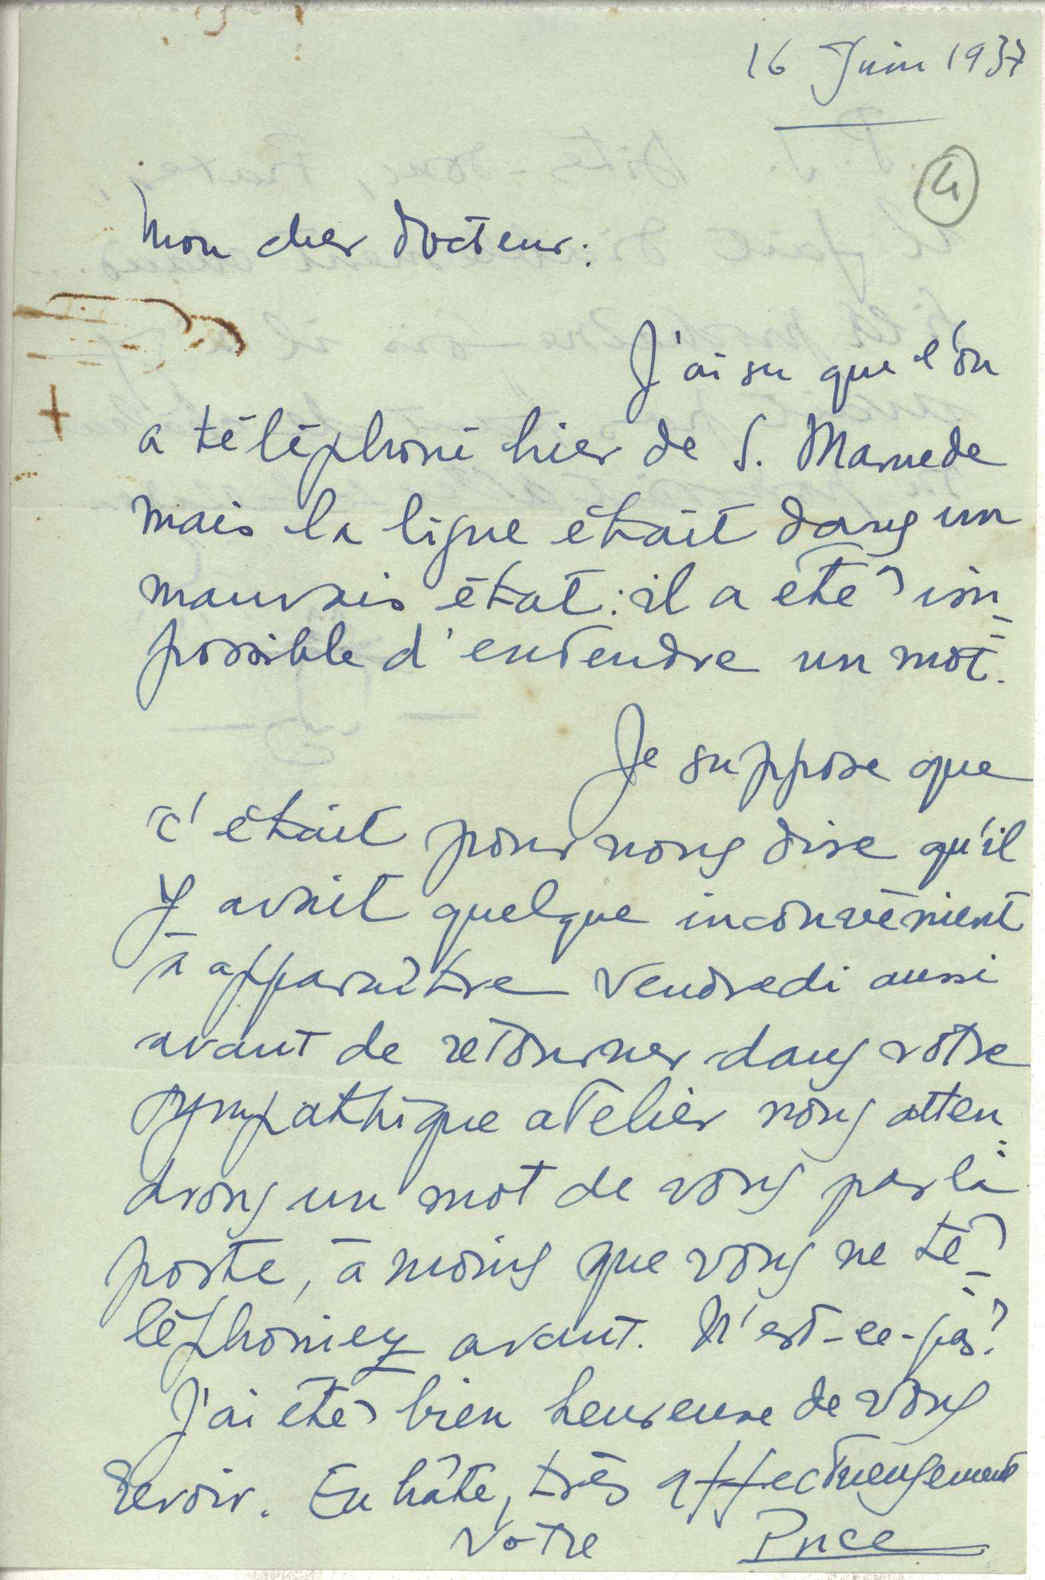 16 Juin 1937
4
Mon cher Docteur:
J'ai su que l'on
a téléphoné hier de S. Mamede
mais la ligne était dans un
mauvais état: il a été im-
possible d'entendre un mot.
Je suppose que
c'était pour nous dire qu'il
y avait quelque inconvénient
à apparaître vendredi aussi
avant de retourner dans votre
sympathique atelier nous atten-
drons un mot de vous par la
poste, à moins que vous ne té-
léphoniez avant. N'est-ce-pas?
J'ai été bien heureuse de vous
revoir. En hâte, très affectueusement
votre